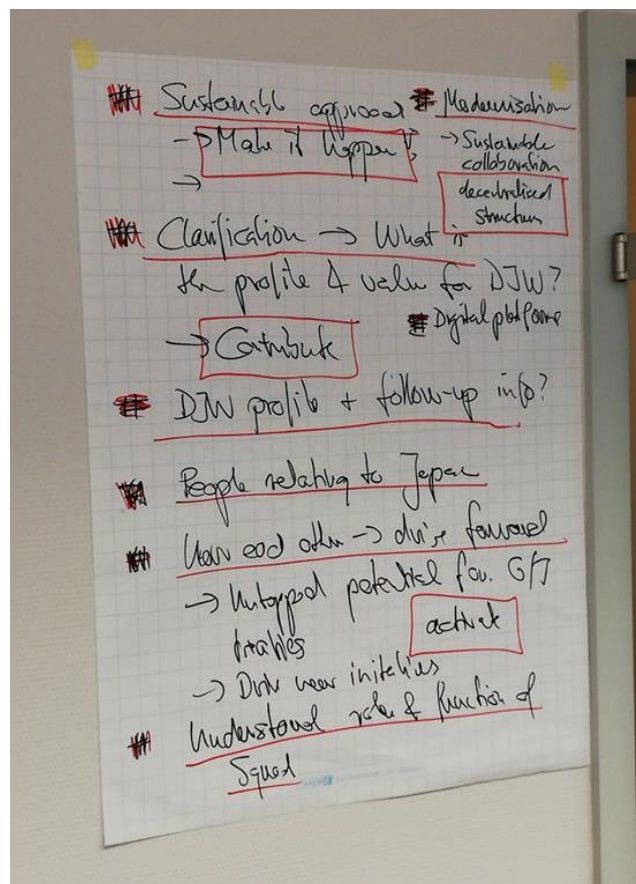 # Sustainable approach
→ Make it happen!
→
# Modernisation
→ Sustainable
collaboration
decentralised
structure
# Clarification → What is
the profile & value for DJW?
→ Contribute
# Digital platform
# DJW profile + follow-up info?
# People relating to Japan
# Know each other → drive forward
→ Untapped potential for G/J
activate
→ Drive new initiatives
# Understand role & function of
Squad